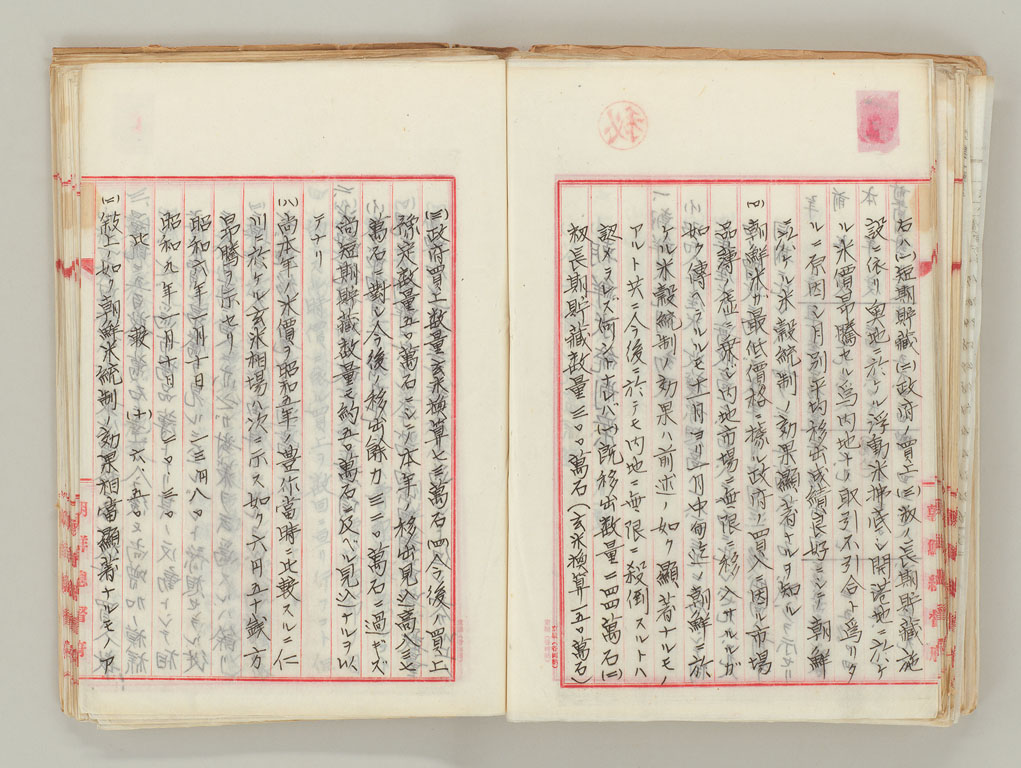 右ハ(一)短期貯藏(二)政府ノ買上(三)籾ノ長期貯藏施
設ニ依リ鮮地ニ於ケル浮動米拂底シ開港地ニ於ケ
ル米價昻騰セル爲內地トノ取引不引合ト爲リタ
ルニ原因シ月別平均移出成績良好ニシテ朝鮮
ニ於ケル米穀統制ノ効果顯著ナルヲ知ル
(四)朝鮮米ガ最低價格ニ據ル政府ノ買入ニ因ル市場
品薄ノ虛ニ乘ジ內地市場ニ無限ニ移入サルルガ
如ク傳ヘラルルモ十一月ヨリ一月中旬迄ノ朝鮮ニ於
ケル米穀統制ノ効果ハ前述ノ如ク顯著ナルモノ
アルト共ニ今後ニ於テモ內地ニ無限ニ殺倒スルトハ
認メラレズ何令ナレバ(イ)旣移出數量二四四萬石(ロ)
籾長期貯藏數量三〇〇萬石(玄米換算一五〇萬石)
(ハ)政府買上數量玄米換算七三萬石(ニ)今後ノ買上
豫定數量五〇萬石ニシテ本年ノ移出見込高八七〇
萬石ニ對シ今後ノ移出餘力三三〇萬石ニ過ギズ
尙短期貯藏數量モ約五〇萬石ニ及ベル見込ナルヲ以
テナリ
(八)尙本年ノ米價ヲ昭和五年ノ豊作當時ニ比較スルニ仁
川ニ於ケル玄米相場ハ次ニ示ス如ク六円五十錢方
昻騰ヲ示セリ
昭和六年一月十日 一三円八〇
昭和九年一月十日 二〇・三〇
比 較 (十)六、五〇
(二)敍上ノ如ク朝鮮米統制ノ効果相當顯著ナルモノア